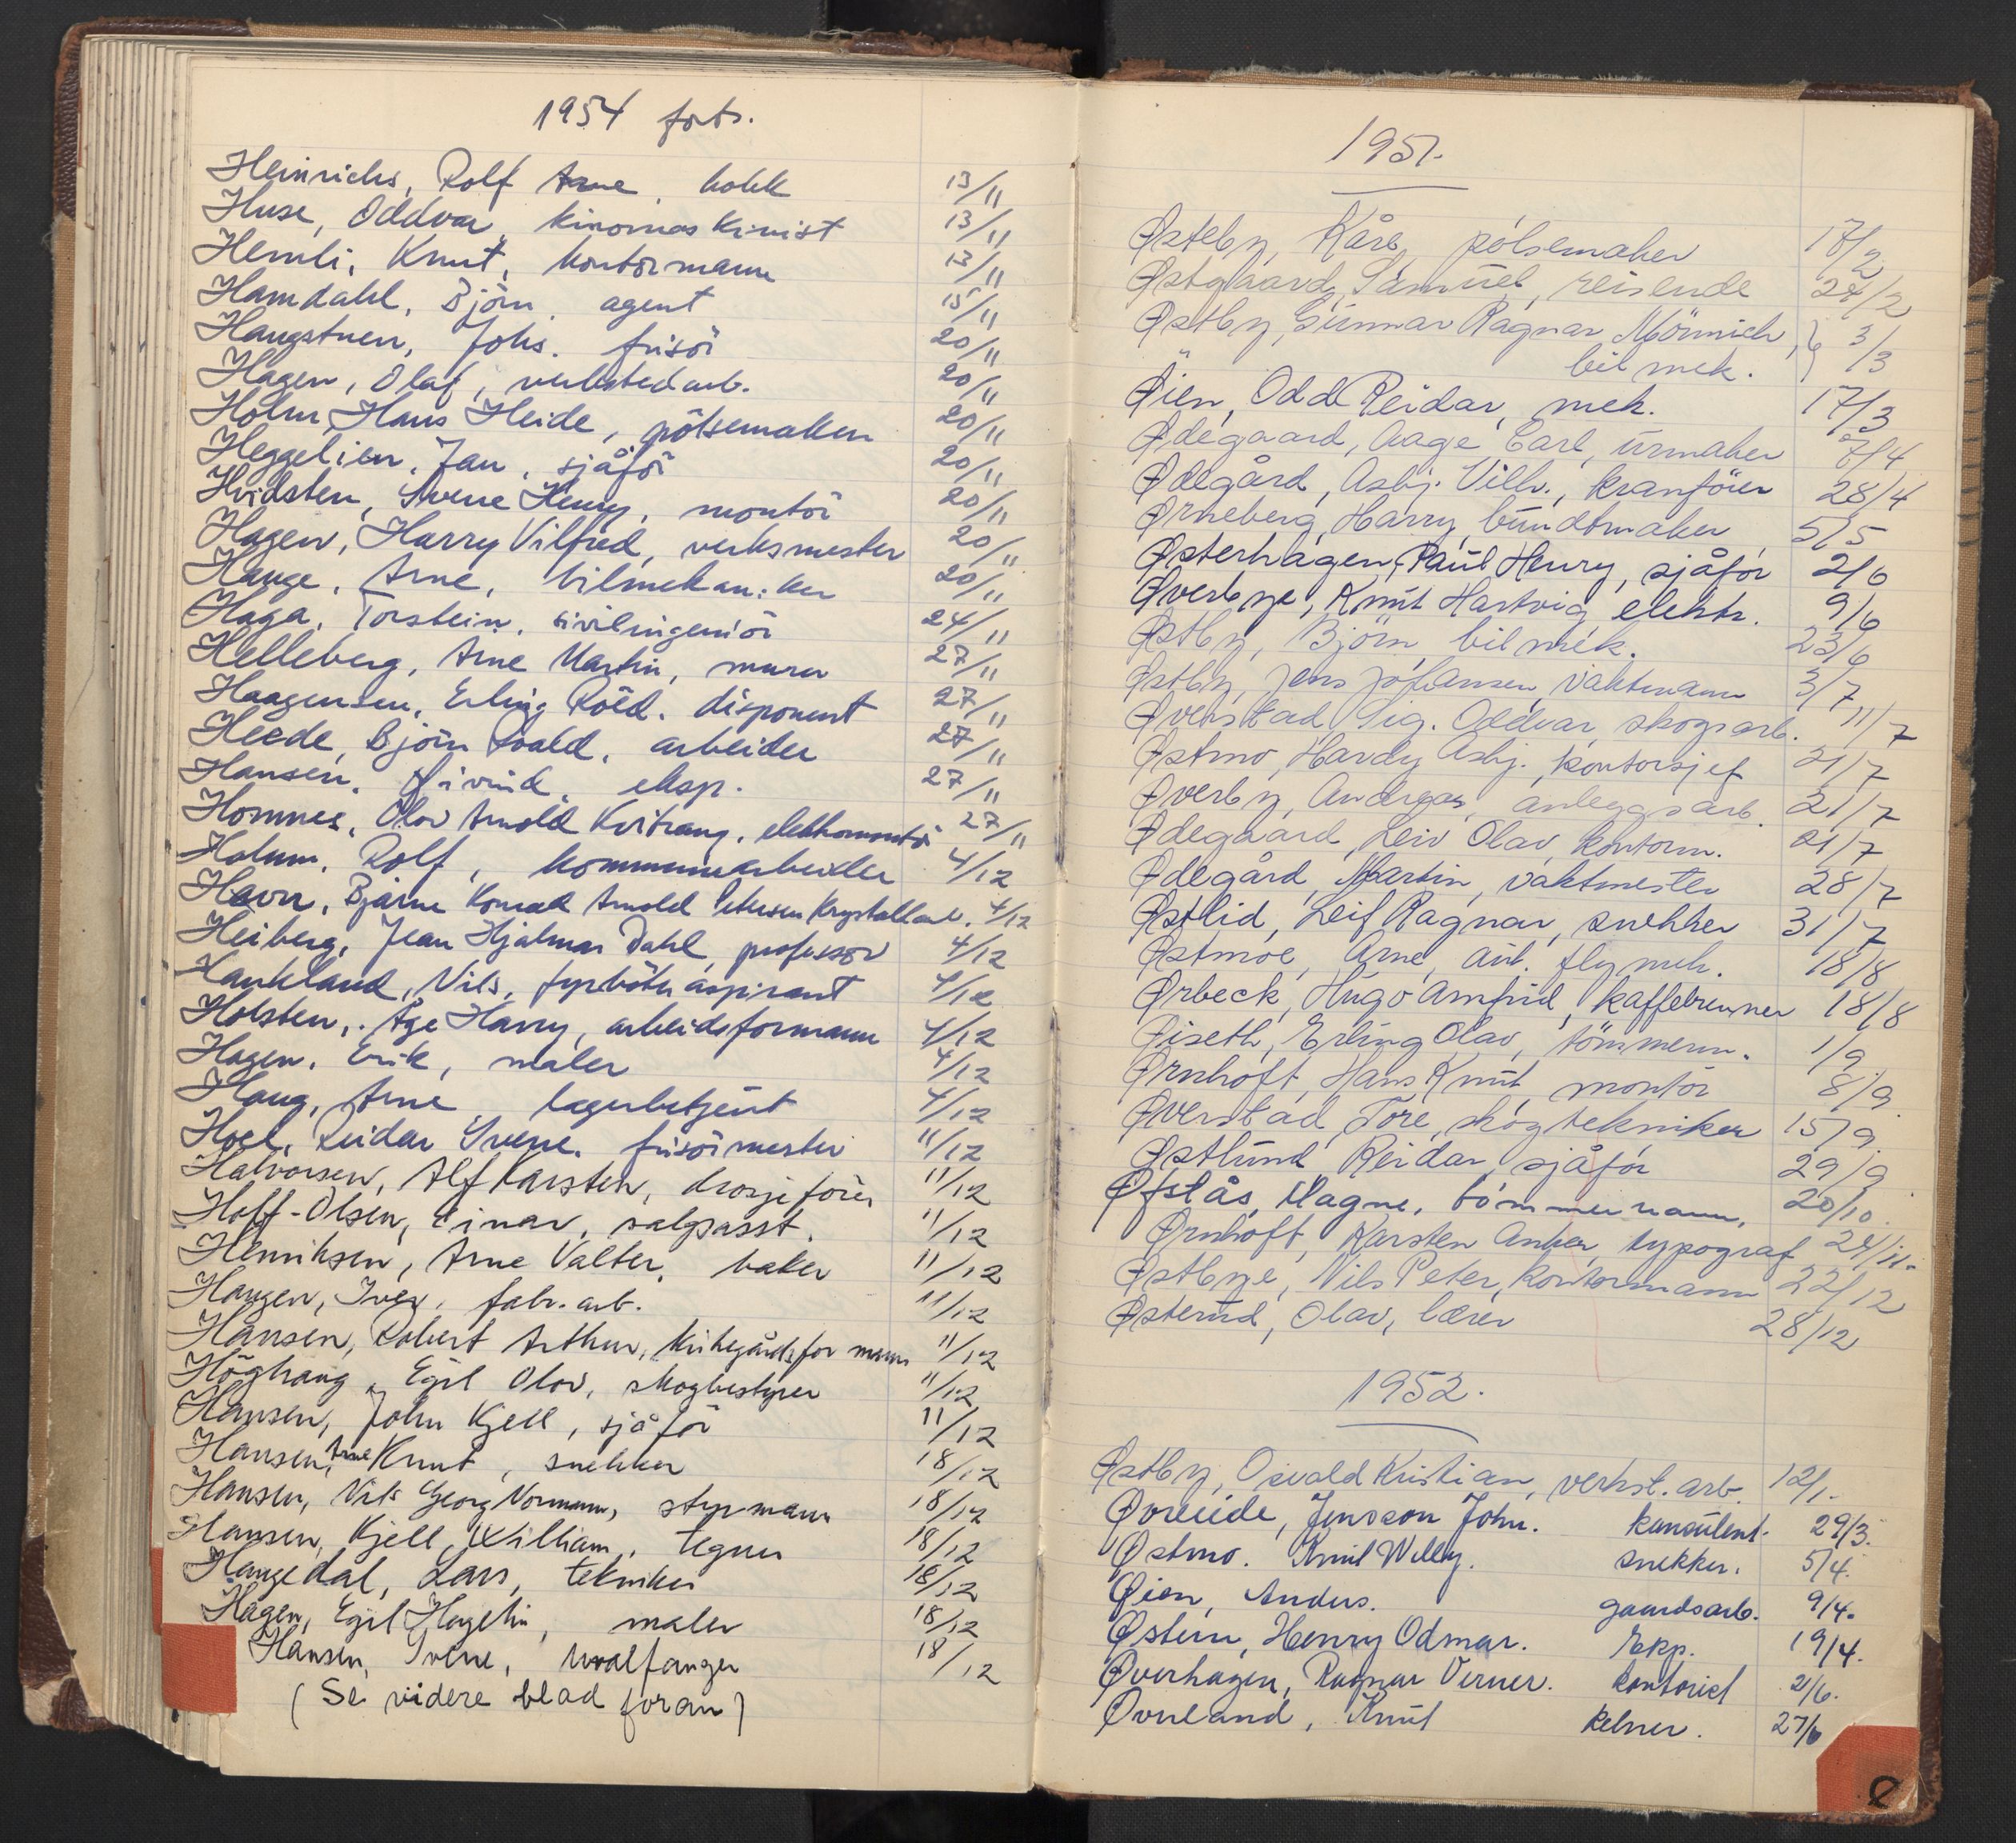 1954 forts.
Heinrichs, Rolf Arne, kokk 13/11
Huse, Oddvar, kinomaskinist 13/11
Hemli, Knut, kontormann 13/11
Hamdahl, Björn, agent 15/11
Haugstuen, Johs. frisör 20/11
Hagen, Olaf, verkstedarb. 20/11
Holm, Hans Heide, pölsemaker 20/11
Heggelien, Jan, sjåför 20/11
Hvidsten, Sverre Henry, montör 20/11
Hagen, Harry Vilfred, verksmester 20/11
Hauge, Arne, bilmekaniker 20/11
Haga, Torstein, sivilingeniör 24/11
Helleberg, Arne Martin, murer 27/11
Haagensen, Erling Röed, disponent 27/11
Heede, Björn Roald, arbeider 27/11
Hansen, Øivind, eksp. 27/11
Homnes, Olav Arnold Kvitrang, elektromontör 27/11
Holum, Rolf, kommunearbeider 4/12
Havn, Bjarne Konrad Arnold Petersen Krystallarb. 4/12
Heiberg, Jean Hjalmar Dahl, professor 4/12
Haukland, Nils, fyrböteraspirant 4/12
Holsten, Åge Harry, arbeidsformann 4/12
Hagen, Erik, maler 4/12
Haug, Arne, lagerbetjent 4/12
Hoel, Reidar Sverre, frisörmester 11/12
Halvorsen, Alf Karsten, drosjeförer 11/12
Hoff-Olsen, Einar, salgsasst. 11/12
Henriksen, Arne Valter, baker 11/12
Haugen, Iver, fabr. arb. 11/12
Hansen, Robert Arthur, kirkegårdsformann 11/12
Höghaug, Egil Olav, skogbestyrer 11/12
Hansen, John Kjell, sjåför 11/12
Hansen, Arne Knut, snekker 18/12
Hansen, Nils Georg Normann, styrmann 18/12
Hansen, Kjell William, tegner 18/12
Haugedal, Lars, tekniker 18/12
Hagen, Egil Hagelin, maler 18/12
Hansen, Sverre, hvalfanger 18/12
(Se videre blad foran)
1951.
Østeby, Kåre, pölsemaker 17/2
Østgaard, Samuel, reisende 24/2
Østby, Gunnar Ragnar Mönnich, } 3/3
bilmek.
Øien, Odd Reidar, mek. 17/3
Ødegaard, Aage Carl, urmaker 7/4
Ødegård, Asbj. Vilh., kranförer 28/4
Ørneberg, Harry, bundtmaker 5/5
Østerhagen, Paul Henry, sjåför 2/6
Øverbye, Knut Hartvig, elektr. 9/6
Østby, Björn, bilmek. 23/6
Østby, Jens Johansen, vaktmann 3/7
Øverstad, Sig. Oddvar, skogsarb. 11/7
Østmo, Hardy Asbj., kontorsjef 21/7
Øverby, Andreas, anleggsarb. 21/7
Ødegaard, Leiv Olav, kontorm. 21/7
Ødegård, Martin, vaktmester 28/7
Østlid, Leif Ragnar, snekker 31/7
Østmoe, Arne, aut. flymek. 18/8
Ørbeck, Hugo Amfrid, kaffebrenner 18/8
Øiseth, Erling Olav, tömmerm. 1/9
Ørnhoft, Hans Knut, montör 8/9
Øverstad, Tore, skogtekniker 15/9
Østlund, Reidar, sjåför 29/9
Øfstås, Magne, tömmermann, 20/10
Ørnhoft, Karsten Anker, typograf 24/11.
Østbye, Nils Peter, Kontormann 22/12
Østerud, Olav, lærer 28/12
1952.
Østby, Osvald Kristian, verkst. arb. 12/1.
Øvreeide, Jensson John. konsulent. 29/3.
Østmo. Knut Willy. snekker. 5/4.
Øien, Anders. gaardsarb. 9/4.
Østern, Henry Odmar. Ekp. 19/4.
Øverhagen, Ragnar Verner. kontorist 2/6.
Øvreland, Knut kelner. 27/6